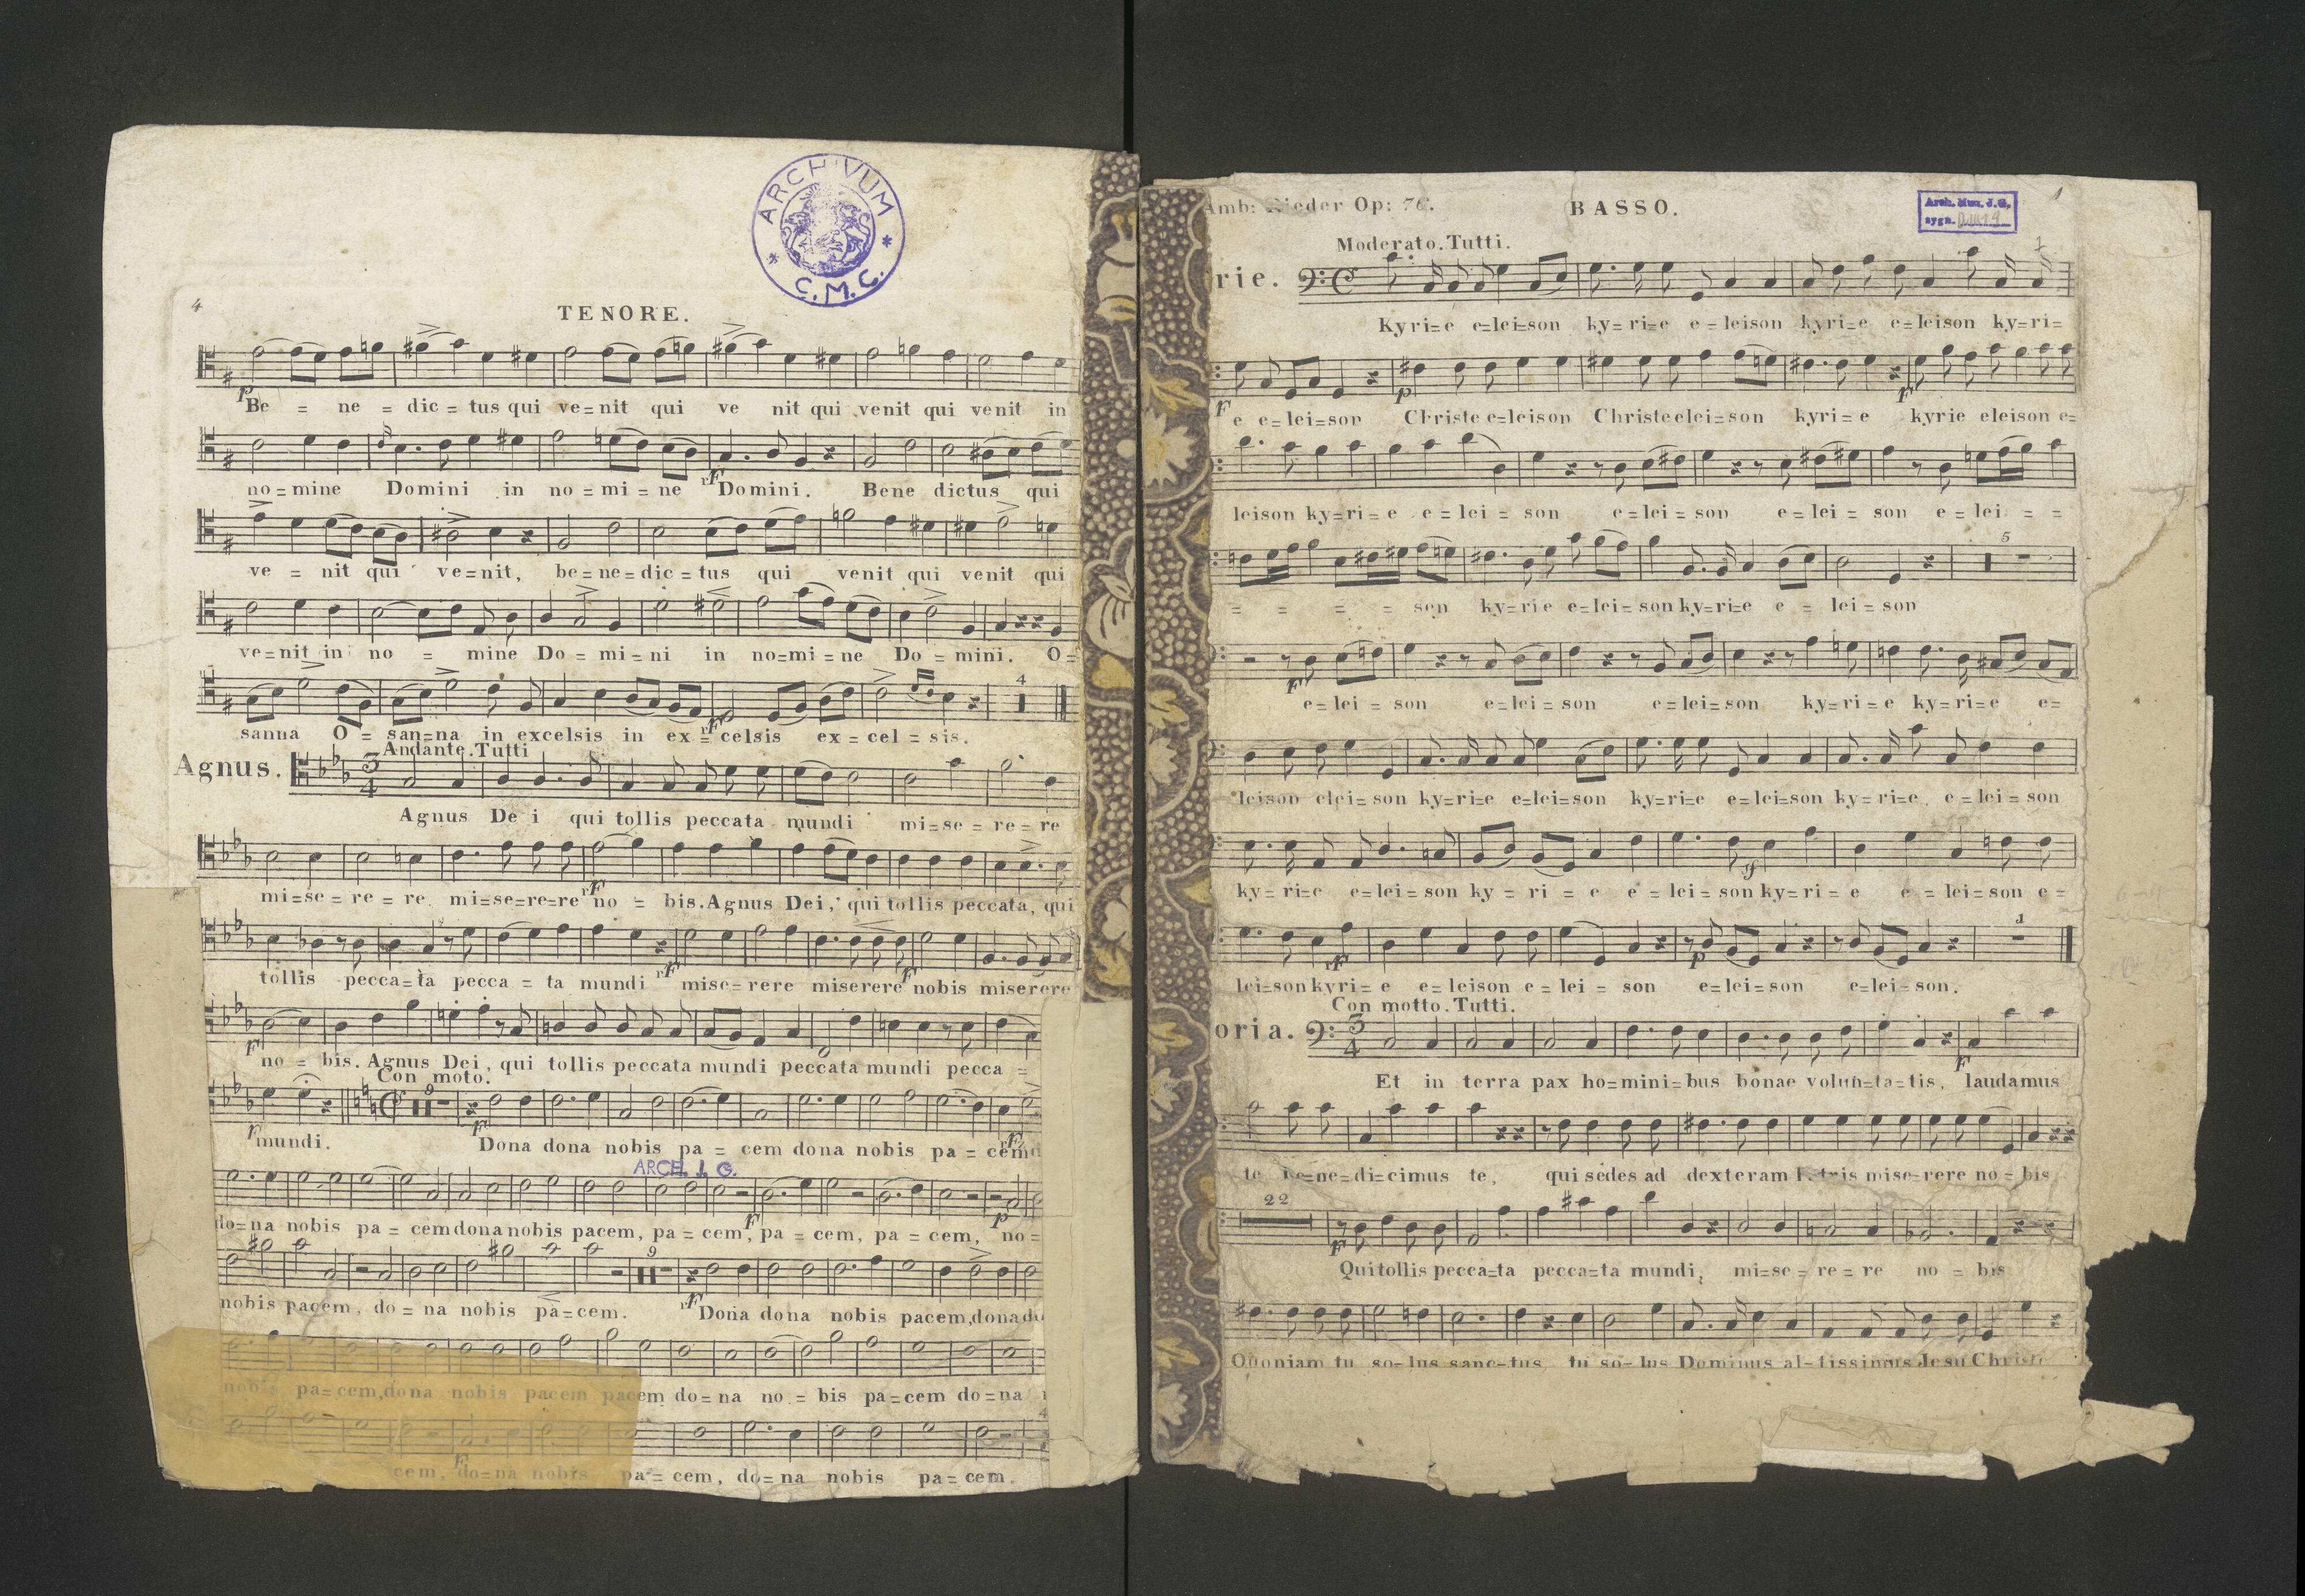 ARCHIVUM
* C.M.C. *
4
TENORE.
p
Be = ne = dic = tus qui ve=nit qui ve nit qui venit qui venit in
no=mine Domini in no=mi=ne Domini. Bene dictus qui
rF
ve = nit qui ve=nit, be=ne=dic=tus qui venit qui venit qui
ve=nit in no = mine Do=mi=ni in no=mi=ne Do=mini. O=
sanna O = san=na in excelsis in ex=celsis ex=cel=sis.
rF
4
Andante. Tutti
Agnus.
3
4
Agnus De i qui tollis peccata mundi mi=se=re=re
mi=se=re=re mi=se=re=re no = bis. Agnus Dei, qui tollis peccata, qui
rF
tollis pecca=ta pecca=ta mundi mise=rere miserere nobis miserere
rF F
no = bis. Agnus Dei, qui tollis peccata mundi peccata mundi pecca =
F
Con moto.
9
mundi. Dona dona nobis pa=cem dona nobis pa=cem
F F rF
ARCH. J. G.
do=na nobis pa=cem dona nobis pacem, pa=cem, pa=cem, pa=cem, no=
F p
9
nobis pacem, do=na nobis pa=cem. Dona dona nobis pacem, dona
rF
pa=cem, dona nobis pacem pacem do=na no=bis pa=cem do=na
4
cem, do=na nobis pa=cem, do=na nobis pa=cem.
F
Amb: Rieder Op: 76.
BASSO.
Arch. Muz. J.G.
sygn.
1
Moderato. Tutti.
rie.
Kyri=e e=lei=son ky=ri=e e=leison kyri=e e=leison ky=ri=
e e=lei=son Christe e=leison Christe elei=son kyri=e kyrie eleison e=
F p F
leison ky=ri=e e=lei=son e=lei=son e=lei=son e=lei = =
5
= = = = son ky=rie e=lei=son ky=ri=e e=lei=son
e=lei=son e=lei=son e=lei=son ky=ri=e ky=ri=e e=
F
leison elei=son ky=ri=e e=lei=son ky=ri=e e=lei=son ky=ri=e e=lei=son
ky=ri=e e=lei=son ky=ri=e e=lei=son ky=ri=e e=lei=son e=
lei=son kyri=e e=leison e=lei=son e=lei=son e=lei=son.
rF p 1
Con motto. Tutti.
oria.
3
4
Et in terra pax ho=mini=bus bonae volun=ta=tis, laudamus
F
te be=ne=di=cimus te, qui sedes ad dexteram Patris mise=rere no=bis
22
F
Qui tollis pecca=ta pecca=ta mundi, mi=se=re=re no=bis
Quoniam tu so=lus sanc=tus tu so=lus Dominus al=tissimus Jesu Christe